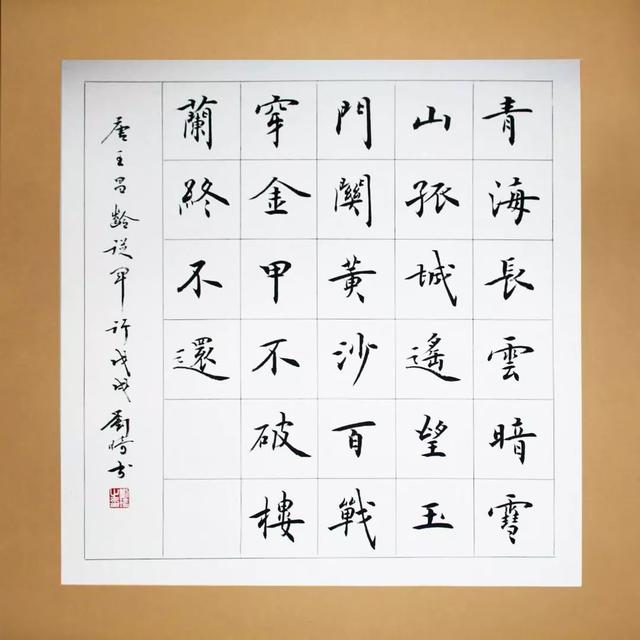 青海長雲暗雪
山孤城遙望玉
門關黃沙百戰
穿金甲不破樓
蘭終不還
唐王昌齡從軍行戊戌劉崎书